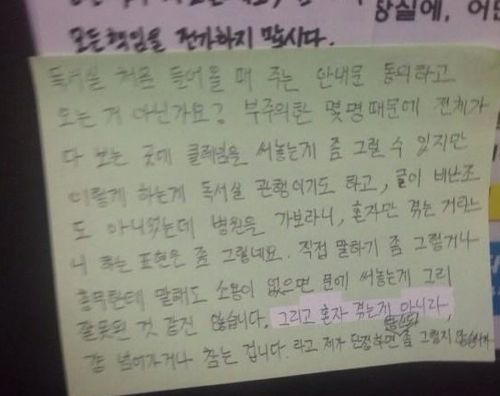 황실에, 어떤
모든책임을 전가하지 맙시다.
독서실 처음 들어올 때 주는 안내문 동의하고
오는 거 아닌가요? 부주의한 몇명 때문에 전체가
다 보는 곳에 클레임을 써놓는게 좀 그럴 수 있지만
이렇게 하는게 독서실 관행이기도 하고, 글이 비난조
도 아니였는데 병원을 가보라니, 혼자만 겪는 거라느
니 하는 표현은 좀 그렇네요. 직접 말하기 좀 그렇거나
총무한테 말해도 소용이 없으면 문에 써놓는게 그리
잘못된 것 같진 않습니다. 그리고 혼자 겪는게 아니라,
걍 넘어가거나 참는 겁니다. 라고 제가 단정하면 좀 그렇지 않습니까